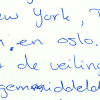 New York, T
en oslo.
de veiling
gemiddeld